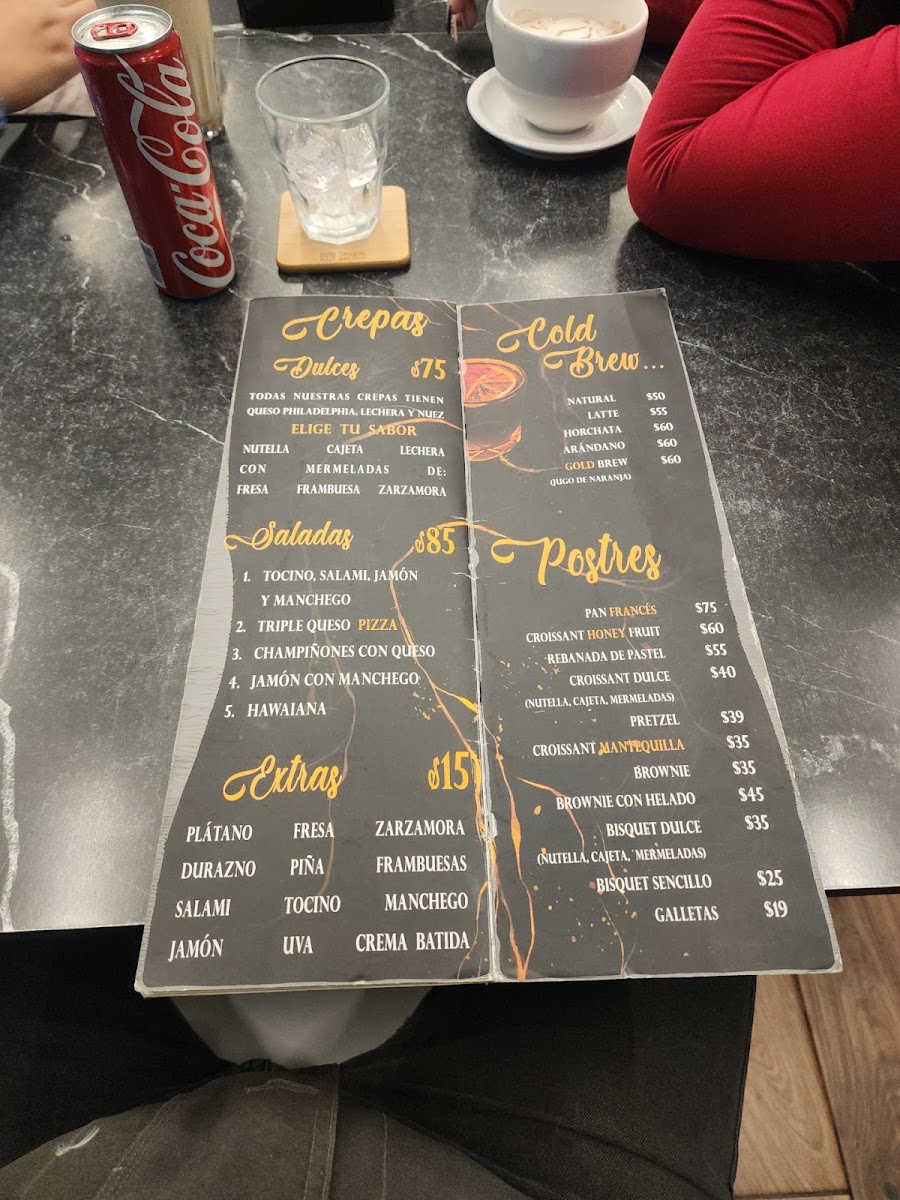 Coca-Cola
Crepas
Dulces $75
TODAS NUESTRAS CREPAS TIENEN
QUESO PHILADELPHIA, LECHERA Y NUEZ
ELIGE TU SABOR
NUTELLA CAJETA LECHERA
CON MERMELADAS DE:
FRESA FRAMBUESA ZARZAMORA
Saladas $85
1. TOCINO, SALAMI, JAMÓN
Y MANCHEGO
2. TRIPLE QUESO PIZZA
3. CHAMPIÑONES CON QUESO
4. JAMÓN CON MANCHEGO
5. HAWAIANA
Extras $15
PLÁTANO FRESA ZARZAMORA
DURAZNO PIÑA FRAMBUESAS
SALAMI TOCINO MANCHEGO
JAMÓN UVA CREMA BATIDA
Cold
Brew...
NATURAL $50
LATTE $55
HORCHATA $60
ARÁNDANO $60
GOLD BREW $60
(JUGO DE NARANJA)
Postres
PAN FRANCÉS $75
CROISSANT HONEY FRUIT $60
REBANADA DE PASTEL $55
CROISSANT DULCE $40
(NUTELLA, CAJETA, MERMELADAS)
PRETZEL $39
CROISSANT MANTEQUILLA $35
BROWNIE $35
BROWNIE CON HELADO $45
BISQUET DULCE $35
(NUTELLA, CAJETA, MERMELADAS)
BISQUET SENCILLO $25
GALLETAS $19